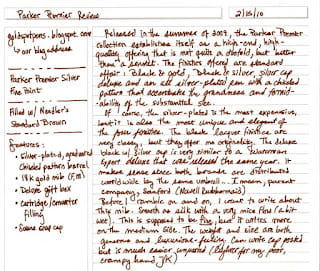 Parker Premier Review
2/15/10
goldspotpens.blogspot.com
our blog address
Parker Premier Silver
Fine Point
Filled w/ Noodler's
Standard Brown
Features:
Silver-plated, graduated
Chiseled pattern barrel
18k gold nib (F, M)
Deluxe gift box
Cartridge/converter
filling
Snap cap
Released in the summer of 2009, the Parker Premier
collection establishes itself as a high-end, high-
quality offering that is not quite a duofold, but "better
than" a sonnet. The finishes offered are standard
affair: Black & gold, black & silver, silver cap
deluxe and an all silver-plated pen with a chiseled
pattern that accentuates the grandness and formid-
ability of the substantial size.
Of course, the silver-plated is the most expensive,
but it is also the most unique and elegant of
the four finishes. The black lacquer finishes are
very classy, but they offer no originality. The deluxe
black & silver cap is very similar to a Waterman
Expert deluxe that was released the same year. It
makes sense since both brands are distributed
worldwide by the same umbrell... I mean, parent
company, Sanford (Newell Rubbermaid)
Before I ramble on and on, I want to write about
this nib. Smooth as silk with a very nice flex (a bit
wet). This is supposed to be fine, but it writes more
on the medium side. The weight and size are both
generous and luxurious-feeling. Can write cap posted
but is much easier unposted (lighter for my poor,
crampy hand JK)